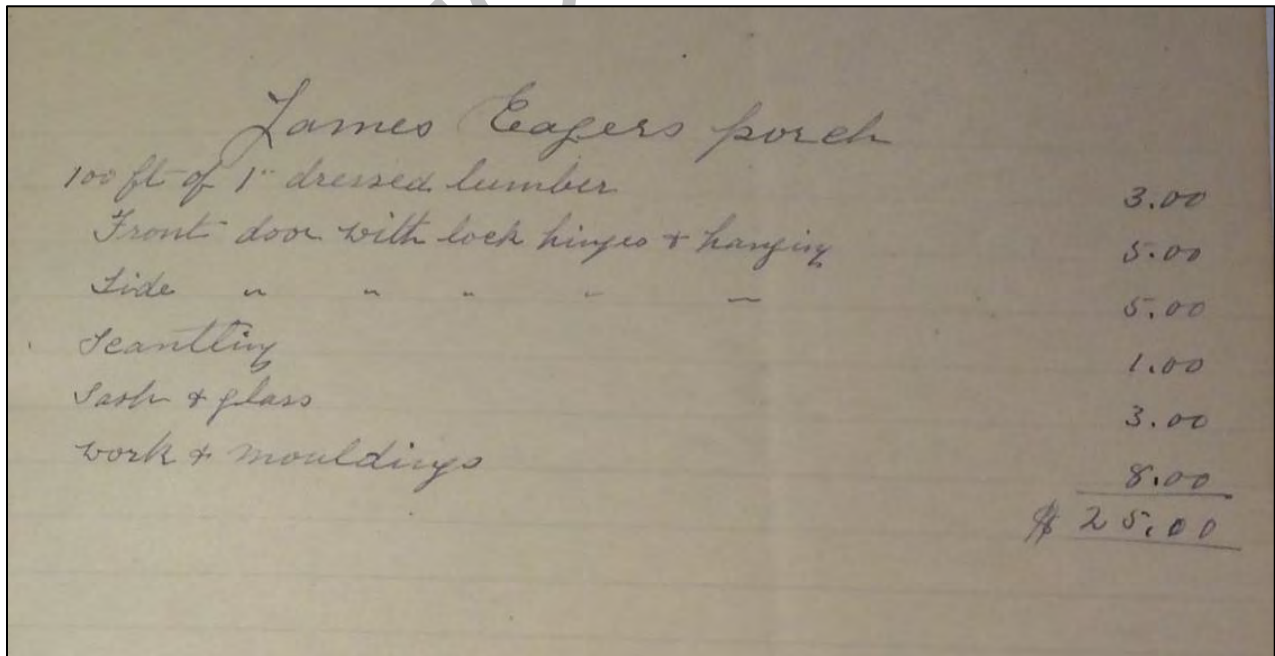 James Eagers porch
100 ft of 1" dressed lumber 3.00
Front door with lock hinges & hanging 5.00
Side " " " " " 5.00
Scantling 1.00
Sash & glass 3.00
work & mouldings 8.00
$ 25.00